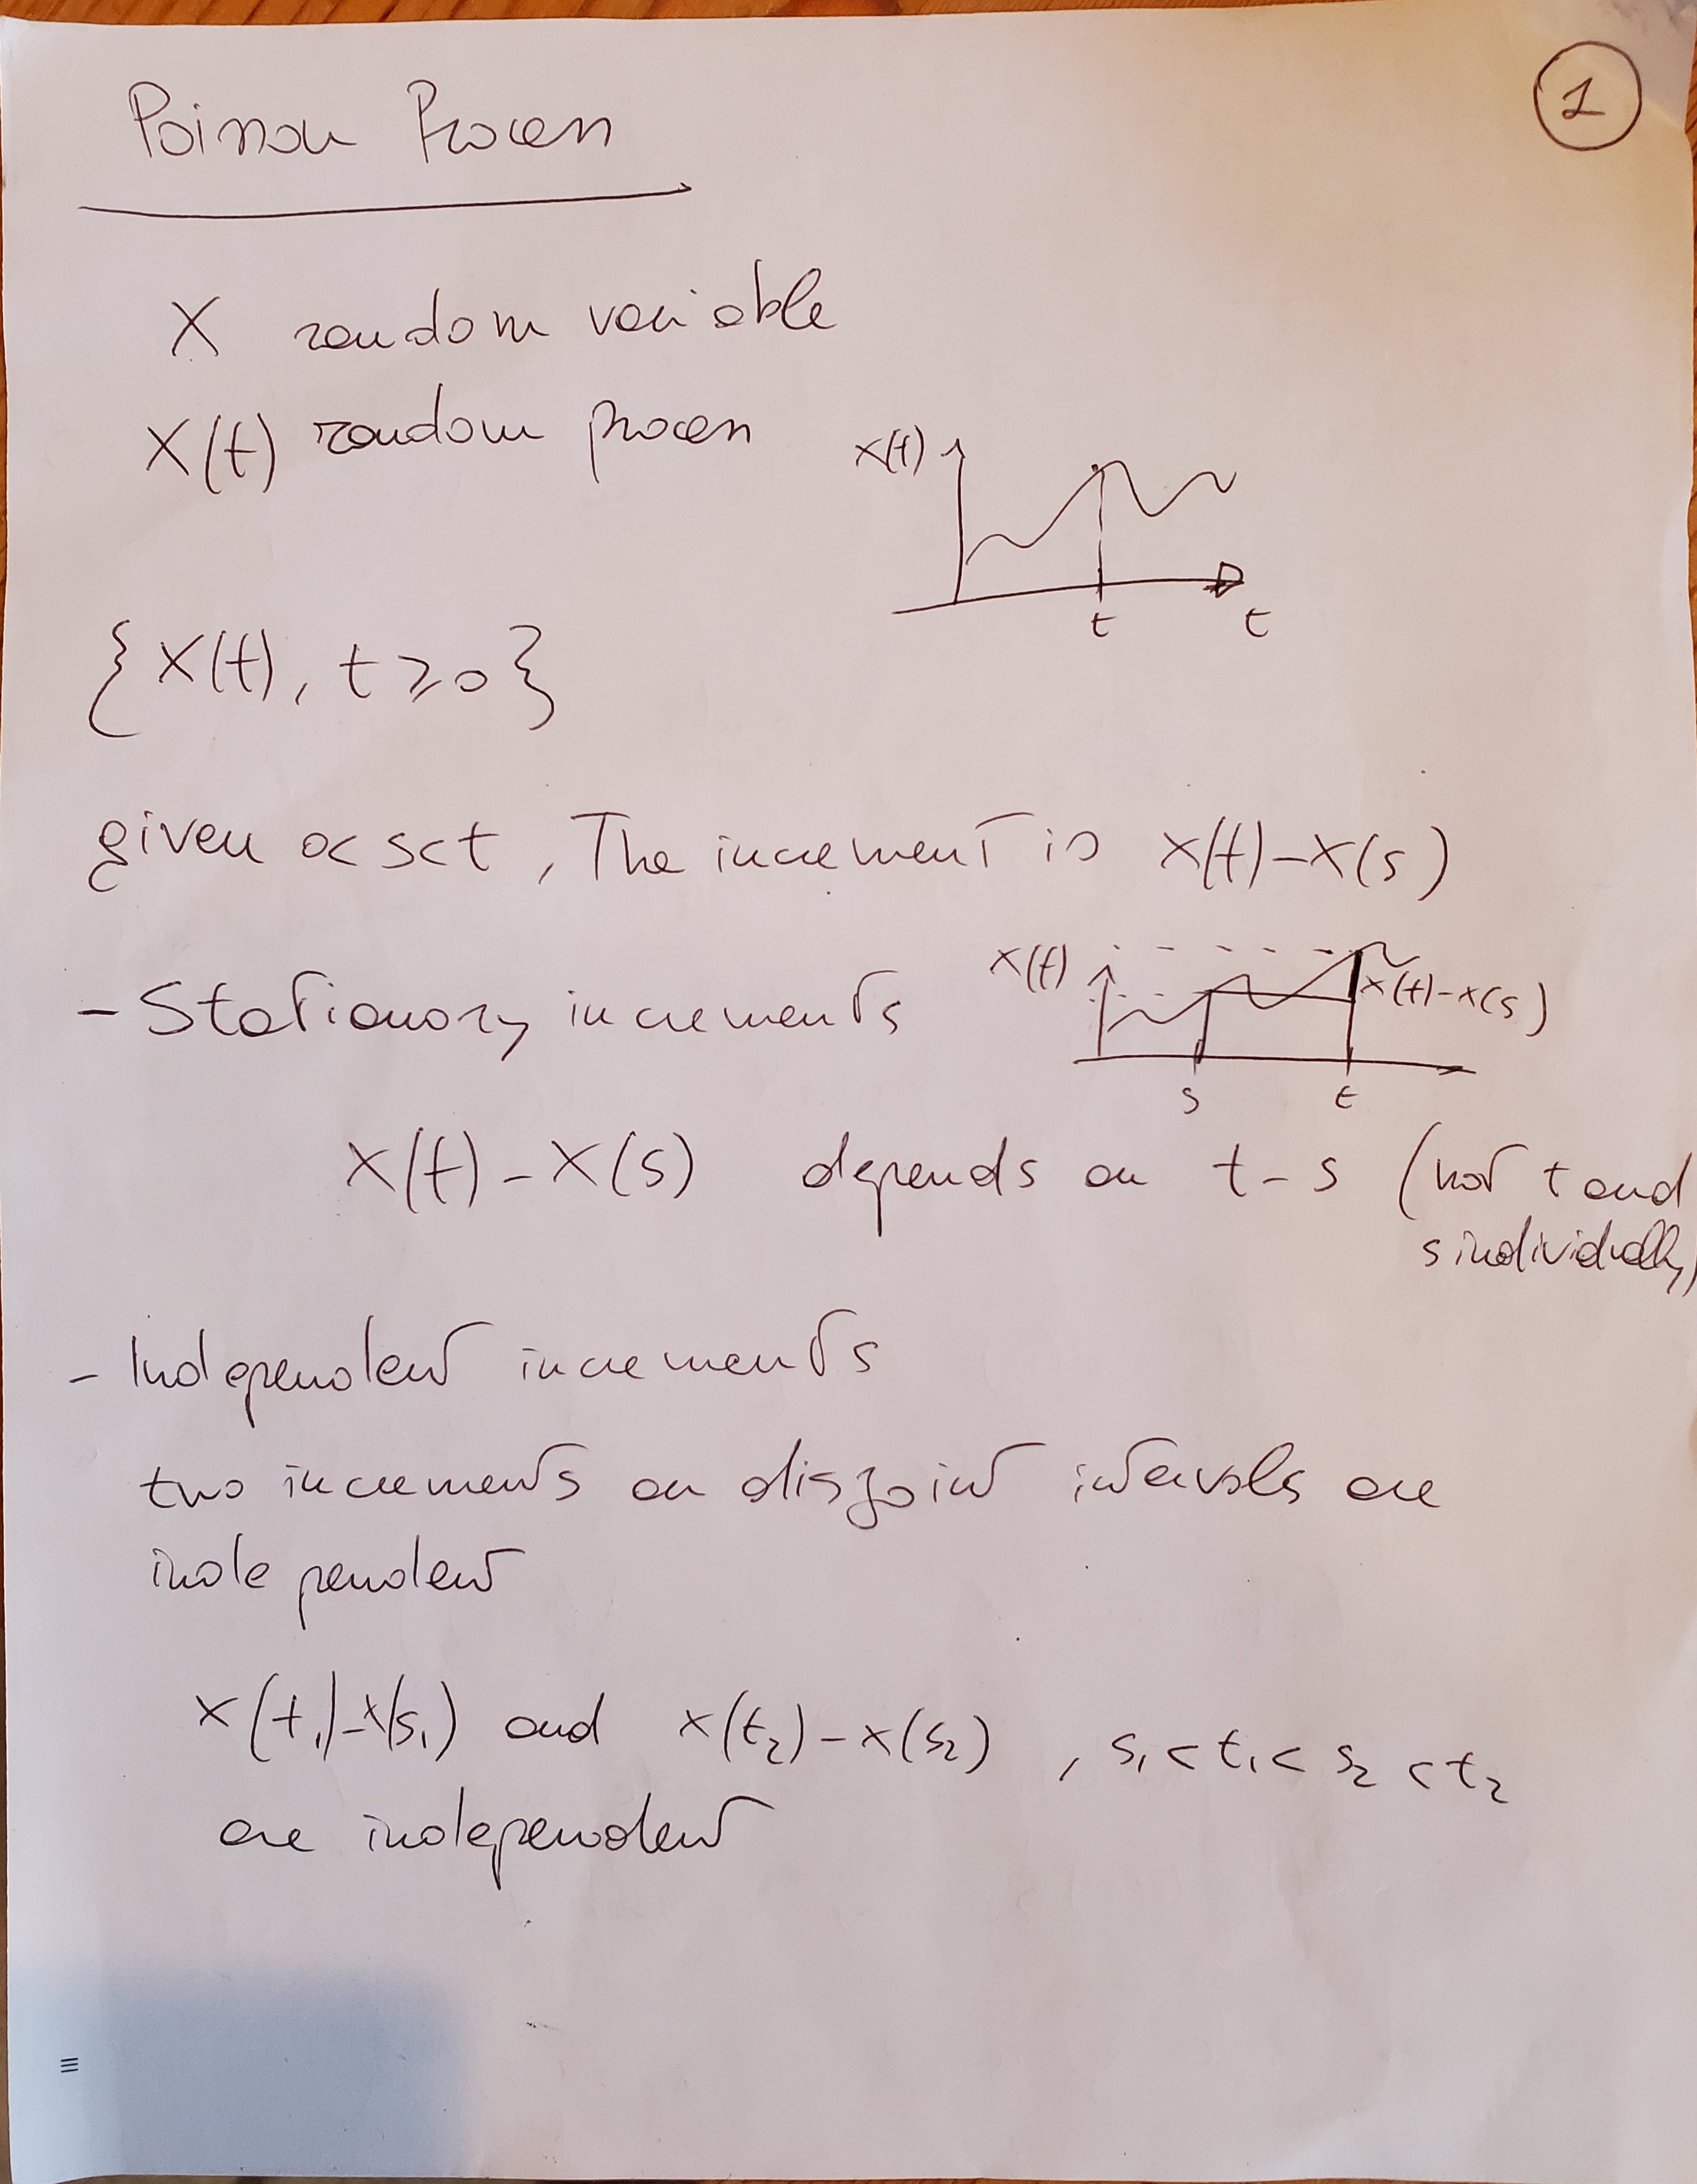 1
Poisson Process
X random variable
X(t) random process
x(t)
t t
{X(t), t ⩾ 0}
given 0<s<t, The increment is X(t)-X(s)
- Stationary increments
x(t)
x(t)-x(s)
s t
X(t)-X(s) depends on t-s (not t and
s individually)
- Independent increments
two increments on disjoint intervals are
independent
x(t₁)-x(s₁) and x(t₂)-x(s₂), s₁<t₁<s₂<t₂
are independent